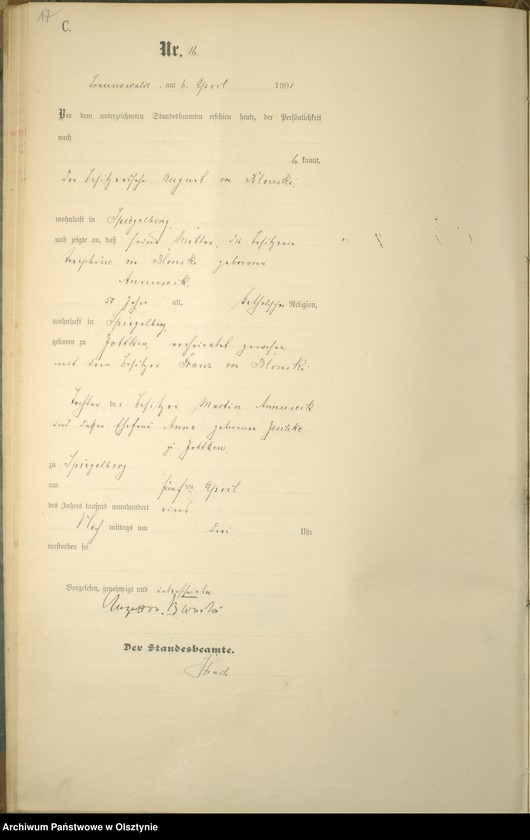 17
C.
Nr. 16.
Braunswald, am 6. April 1901
Vor dem unterzeichneten Standesbeamten erschien heute, der Persönlichkeit
nach
be kannt,
August von Blonski,
wohnhaft in Spiegelberg
und zeigte an, daß seine Mutter, die Besitzerin
Josephine von Blonski geborene
50 Jahre alt, katholischer Religion,
wohnhaft in Spiegelberg,
geboren zu Jottken, verheiratet gewesen
mit dem Besitzer Franz von Blonski
Tochter der Besitzer Martin
und dessen Ehefrau Anna geborene
zu Jottken,
zu Spiegelberg
am fünften April
des Jahres tausend neunhundert eins
Nach mittags um drei Uhr
verstorben sei
Vorgelesen, genehmigt und unterschrieben
August v. Blonski
Der Standesbeamte.
Archiwum Państwowe w Olsztynie